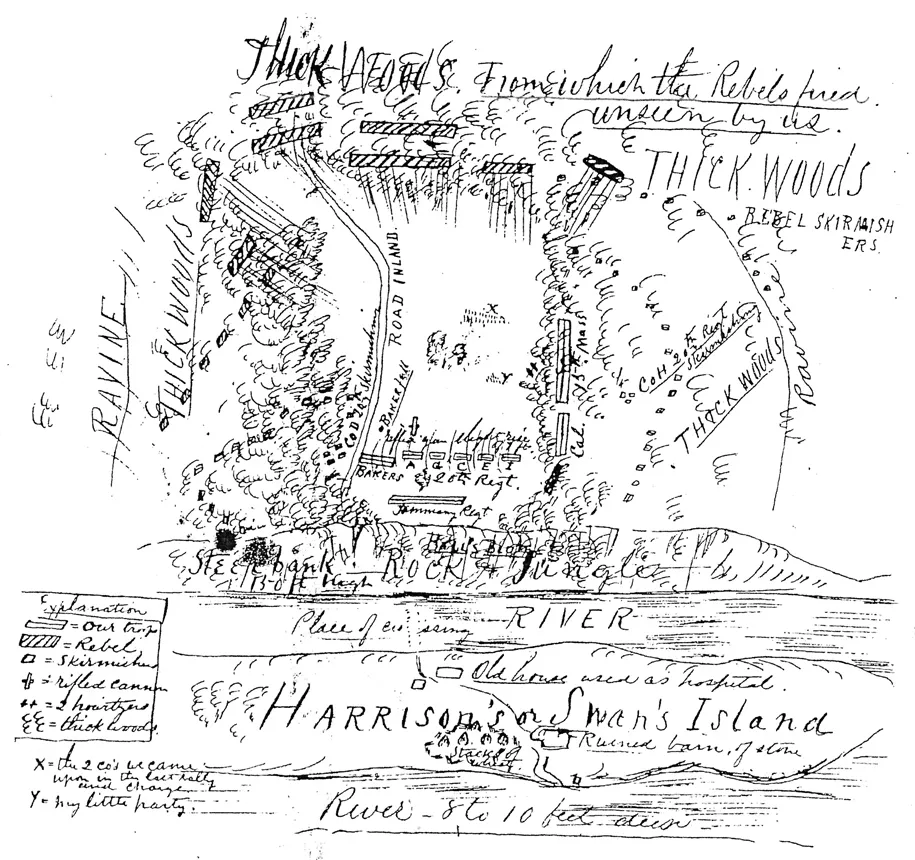 THICK WOODS. From which the Rebels fired
unseen by us.
THICK WOODS
REBEL SKIRMISH
ERS.
RAVINE
THICK WOODS
ROAD INLAND.
X
Y
15th Mass
Cal.
Co H 20th Regt
Skirmishing
THICK WOODS
Road
Co D 20th Skirmishing
BAKER fell
A G C E I
BAKERS
20th Regt.
Tammany Regt
Steep bank
150 ft High
ROCK & Jungle
Place of crossing
RIVER
Old house used as hospital.
HARRISON'S or Swan's Island
Ruined barn, of stone
Stacks of
River - 8 to 10 feet deep
Explanation
= Our trop
= Rebel
= Skirmishers
= rifled cannon
= 2 howitzers
= thick woods.
X = the 2 co's we came
upon in the last rally
and charge
Y = my little party.